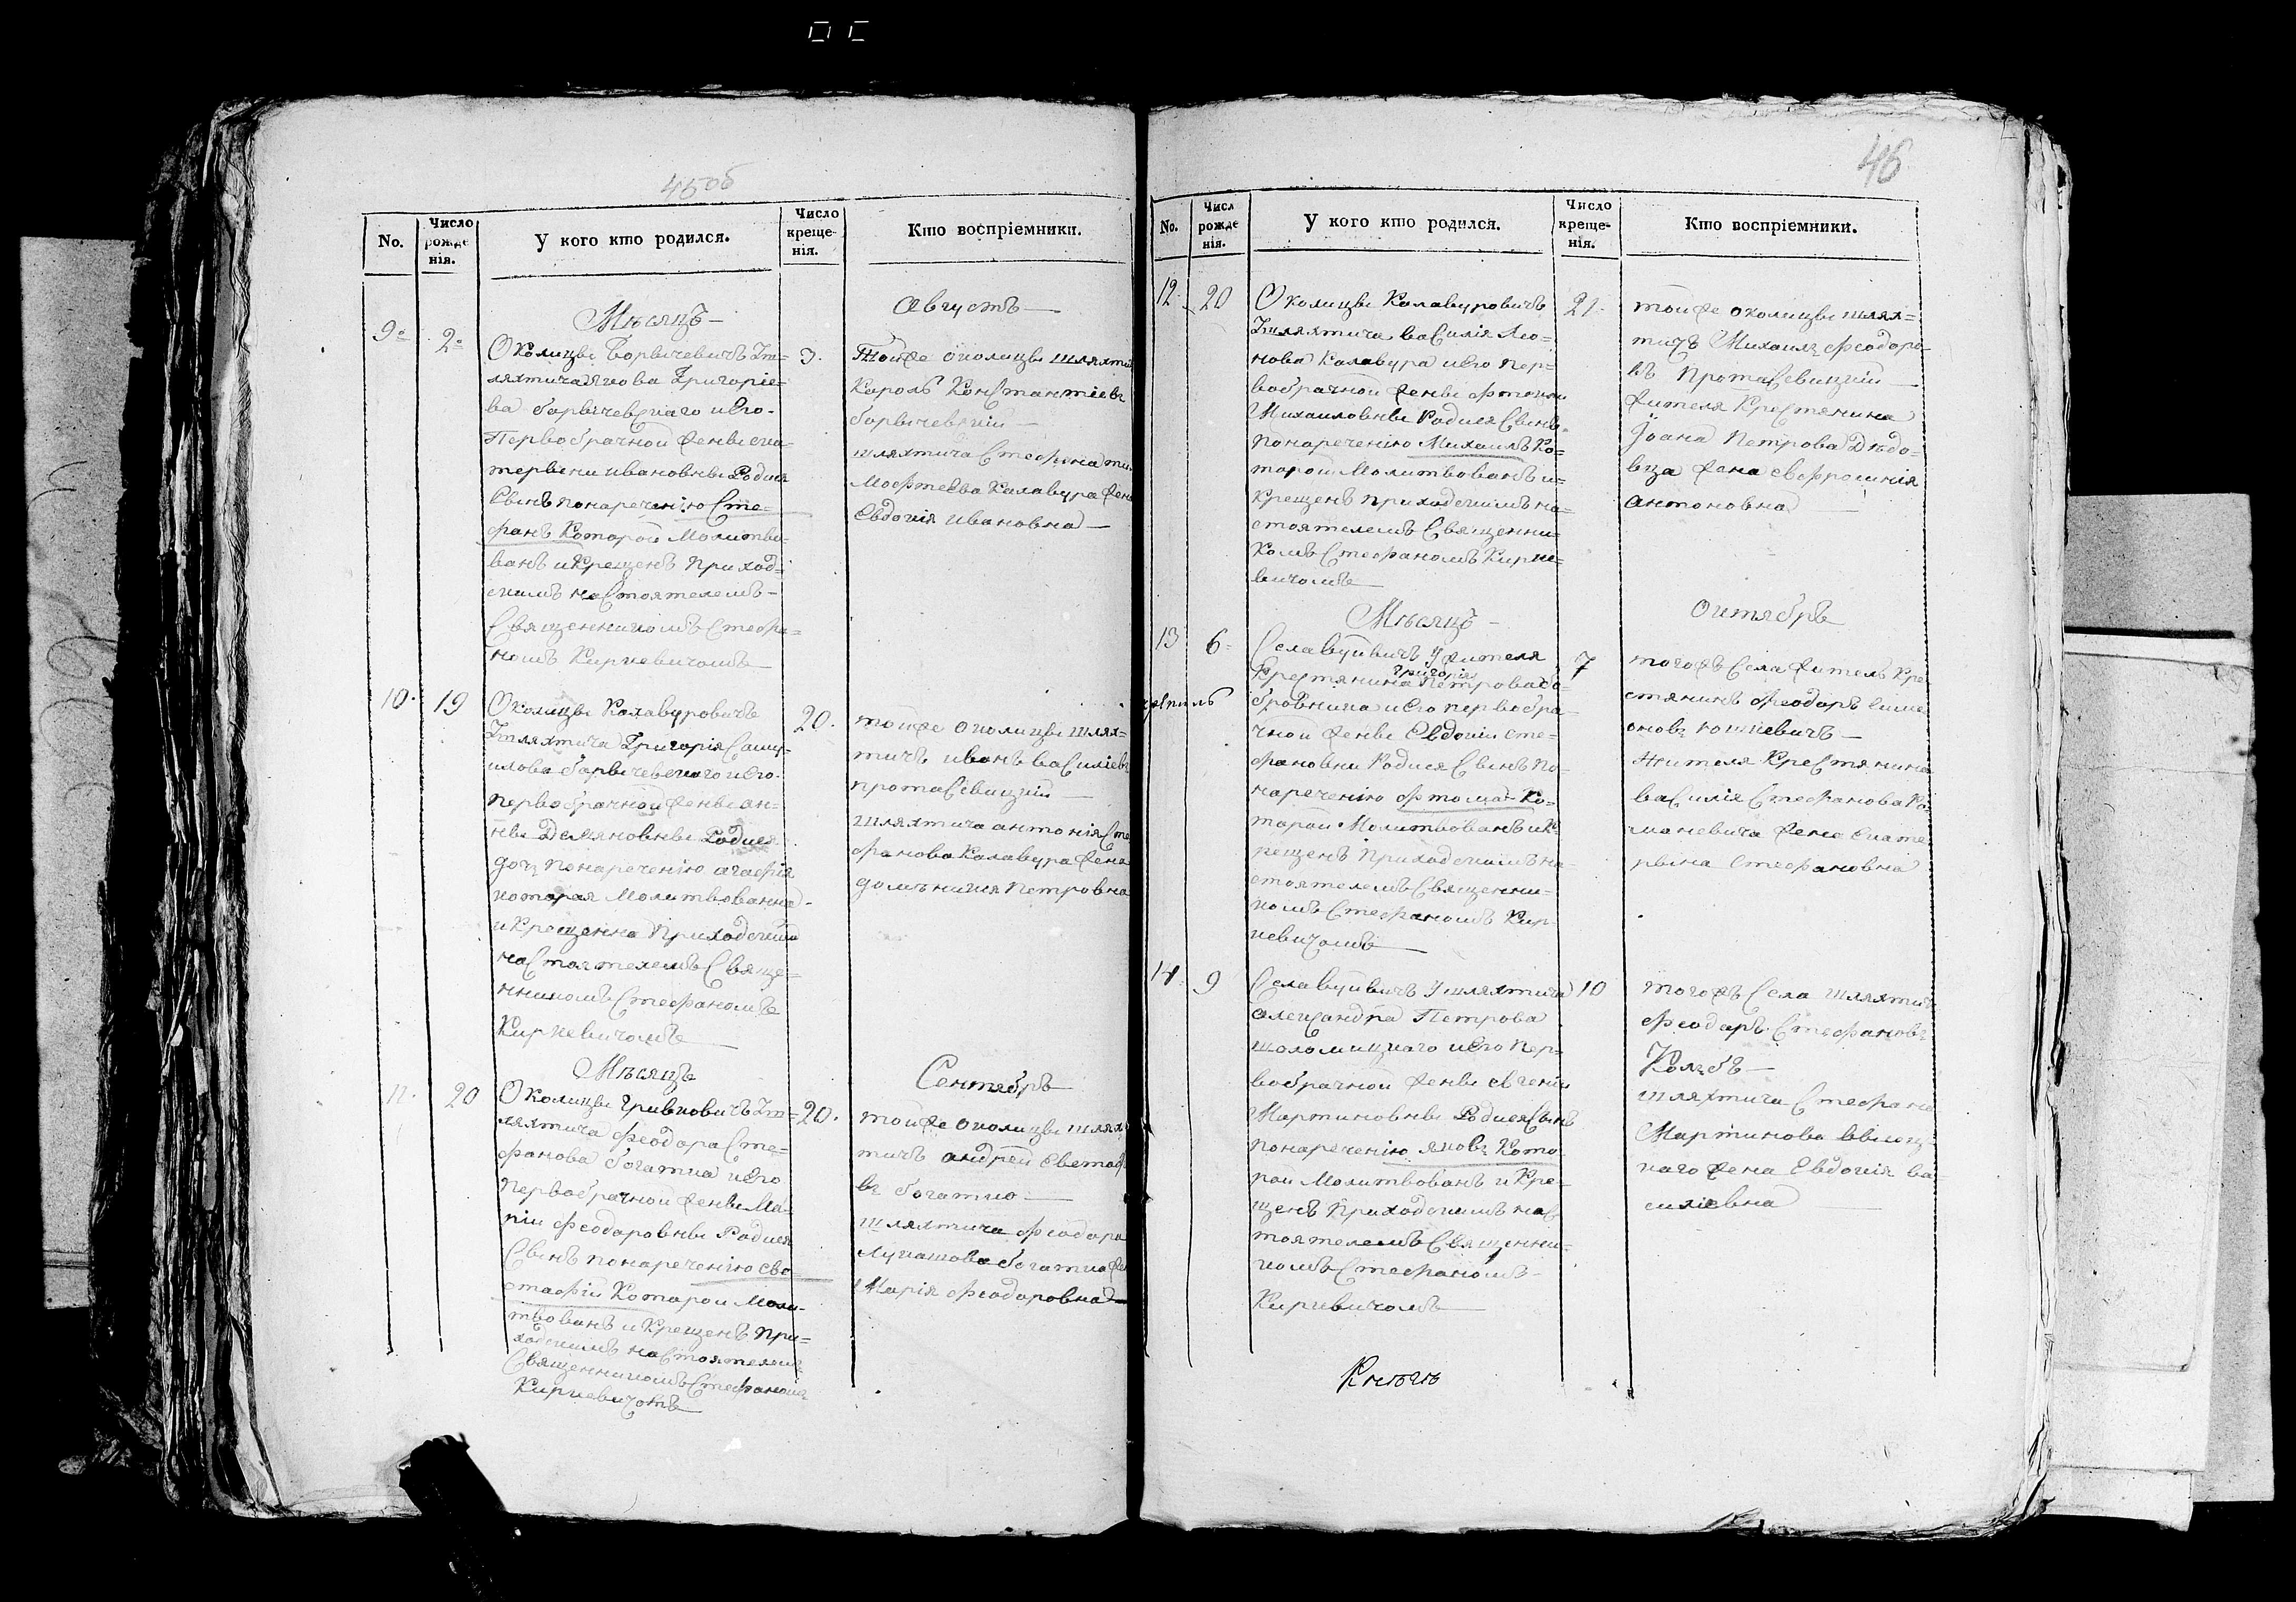 45об
No.
Число рожденія.
У кого кто родился.
Число крещенія.
Кто воспріемники.
Мѣсяцъ —
Августъ —
9 2
Околицы Борвичевичъ Ш=
ляхтича Якова Григоріе=
ва борвичевскаго и Его
Первобрачной женѣ ека=
терѣни ивановнѣ Родился
Свінъ понареченію Сте=
фанъ Которой Молитво=
ванъ и Крещенъ приход=
скимъ настоятелемъ —
Священникомъ Стефа=
номъ Киркевичомъ —
3.
Тойже околицы шляхти
Кароль Константіевъ
борвичевскій —
шляхтича Стефана ти
Мофтеева Калавура жена
Евдокія ивановна —
10. 19
Околицы Калавуровичъ
Шляхтича Григорія Саму=
илова борвичевскаго и его
первобрачной женѣ ан=
нѣ Демяновнѣ Родися
дочъ понареченію агафія
которая Молитвованна
и Крещенна Приходским
настоятелемъ Свяще=
нникомъ Стефаномъ
Киркевичомъ —
20.
тойже околицы шлях=
тичъ иванъ василіевъ
протасевицкій —
шляхтича антонія Сте
фанова Калавура жена
домъникия Петровна
Мѣсяцъ
Сентябръ
11. 20
Околицы Гривковичъ Ш=
ляхтича Феодора Сте=
фанова богатка и его
первобрачной женѣ Ма=
ріи Феодоровнѣ Родися
Свінъ понареченію ево=
стафій Которой Моли=
твованъ и Крещенъ при=
ходскимъ настоятелемъ
Священникомъ Стефаномъ
Киркевичомъ —
20.
тойже околицы шлях
тичъ андрей Евстаф
въ богатко —
шляхтича Феодора
Лукашова богатка же
Марія Феодоровна —
46
No.
Числ рожде нія.
У кого кто родился.
Число крещенія.
Кто воспріемники.
12. 20
Околицы Калавуровичъ
Шляхтича василія Лео=
нова Калавура и его пер=
вобрачной женѣ фтекли
Михаиловнѣ Родися Свінъ
понареченію Михаилъ Ко=
торой Молитвованъ и
крещенъ приходскимъ на=
стоятелемъ Священни=
комъ Стефаномъ Кирке=
вичомъ —
21.
тойже околицы шлях=
тичъ Михаилъ Феодоро=
въ Протасевицкій —
жителя Крестянина
Іоана Петрова Дѣдо=
вца жена евфросинія
антоновна —
Мѣсяцъ —
Октябръ
13 6
Села вуйвичъ У жителя
Крестянина Григорія Петрова бо=
бровника и его первобра
чной женѣ Евдокіи сте=
фановни Родися Свінъ по=
нареченію фтома Ко=
торой Молитвованъ и К
рещенъ Приходскимъ на=
стоятелемъ Священни=
комъ Стефаномъ Кир=
кевичомъ —
7
тогожъ Села житель Кре
стянинъ Феодоръ симе
оновъ кошкевичъ —
жителя Крестянина
василія Стефанова Ко
мановича жена екате
рвина Стефановна
14. 9
Села вуйвичъ У шляхтича
александра Петрова
шоломицкаго и его пер=
вобрачной женѣ евгеніи
Мартиновнѣ Родися Свінъ
понареченію яковъ Кото
рой Молитвованъ и Кре
щенъ Приходскимъ нас
тоятелемъ Священни=
комъ Стефаномъ —
Киркевичомъ —
10
тогожъ Села шляхтич
Феодоръ Стефановъ
Колбъ —
шляхтича Стефана
Мартинова
каго жена Евдокія ва
силіевна —
Кнѣгѣ